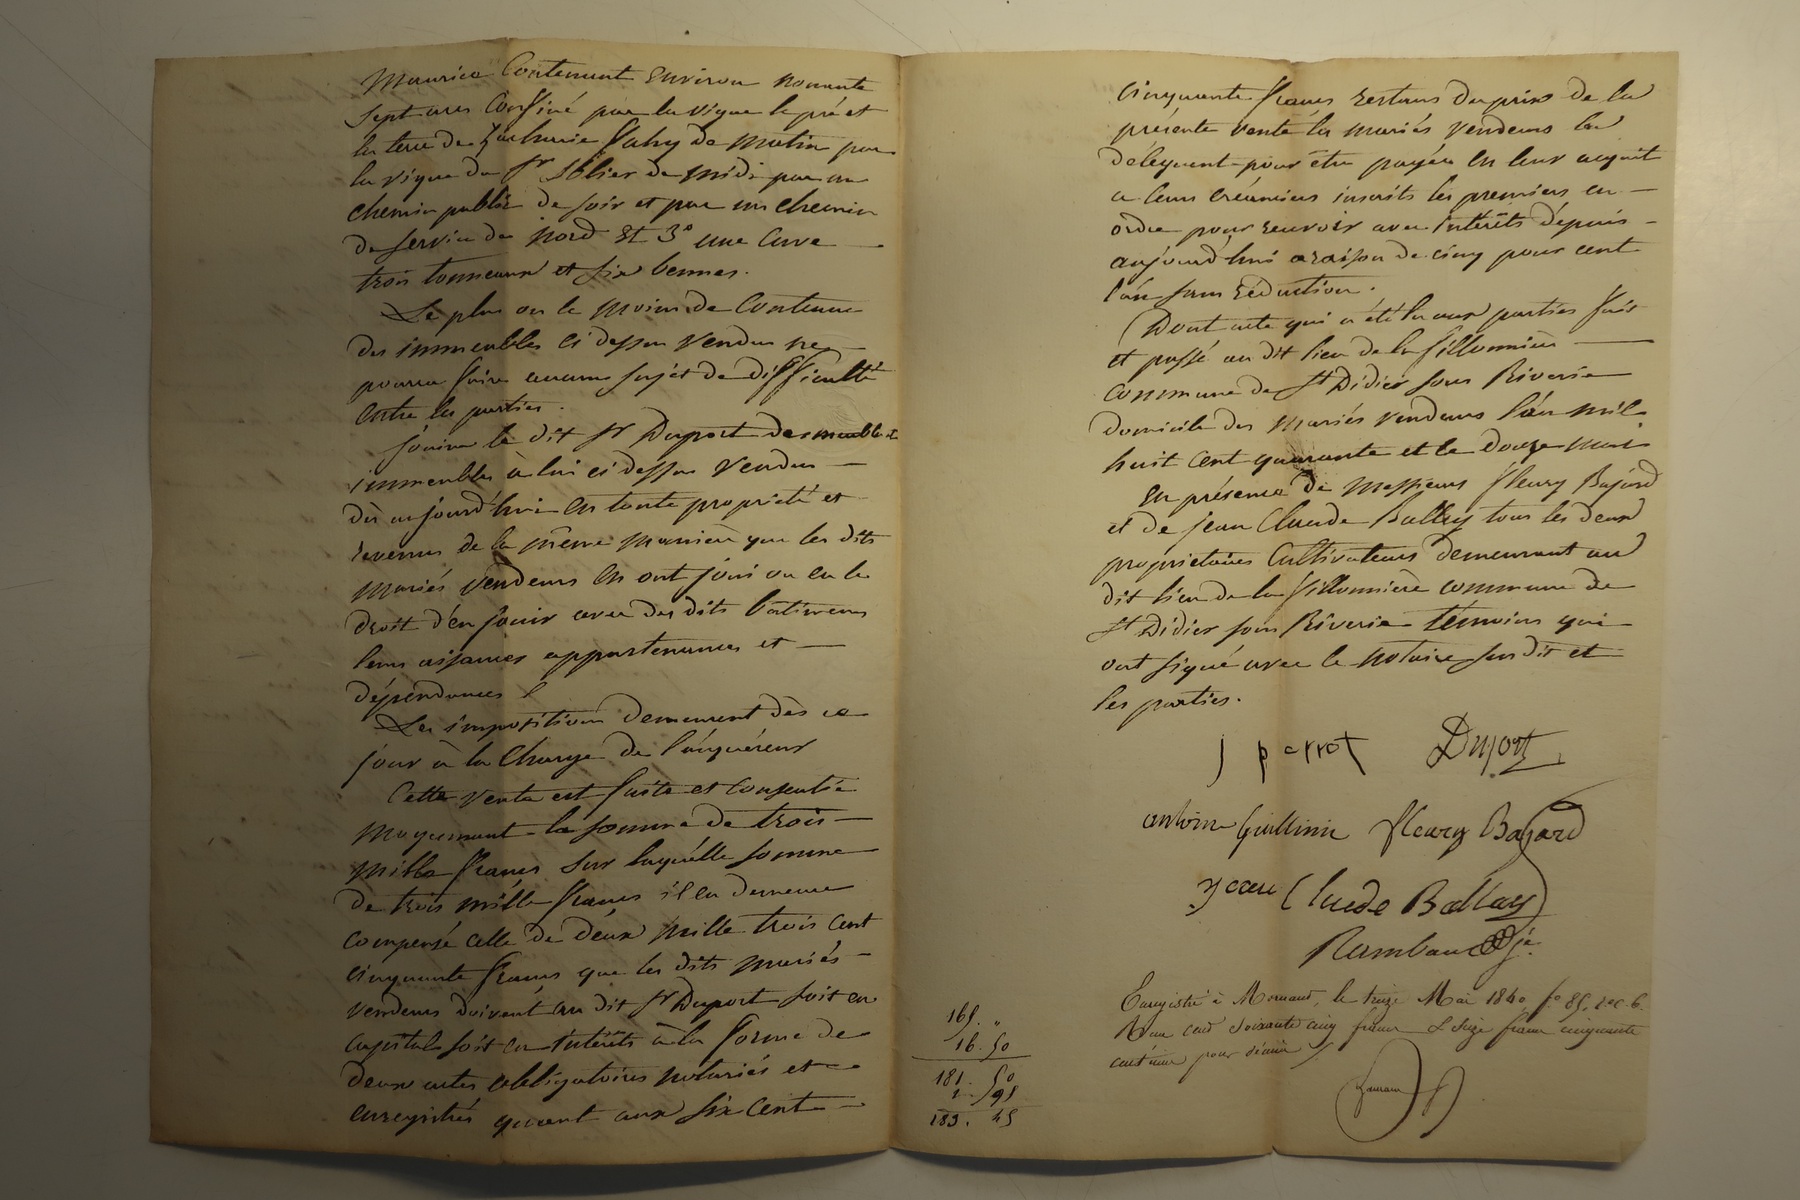 Maurice Contenant Environ nonante
Sept ares Confiné par la vigne le pré et
la terre de Zacharie Fahy de matin par
la vigne du Sr Sblier de midi par un
chemin public de soir et par un chemin
de service de nord Et 3° une Cuve —
trois tonneaux et six bennes.
Le plus ou le moins de Contenue
des immeubles ci dessus vendus ne —
pourra faire aucun sujet de difficulté
Entre les parties.
Jouira le dit Sr Duport des meubles et
immeubles à lui ci dessus vendus —
dès aujourd'hui en toute propriété et
revenus de la même manière que les dits
mariés vendeurs en ont joui ou eu le
droit d'en jouir avec des dits batimens
leurs aisances appartenances et —
dépendances
Les impositions demeurent dès ce
jour à la Charge de l'aquéreur
Cette vente est faite et Consentie
Moyennant la somme de trois —
mille francs sur laquelle somme
de trois mille francs il en demeure
compensé celle de deux mille trois cent
cinquante francs que les dits mariés —
vendeurs doivent au dit Sr Duport soit en
capital soit en intérêts à la forme de
deux actes obligatoires notariés et —
enregistrés quant aux six cent —
cinquante francs restans du prix de la
présente vente les mariés vendeurs les
délèguent pour être payés en leur acquit
a leurs créanciers inscrits les premiers en —
ordre pour recevoir avec intérêts depuis —
aujourd'hui a raison de cinq pour cent
l'an sans réduction.
Dont acte qui a été lu aux parties fait
et passé au dit lieu de la fillonnière —
commune de St Didier sous Riverie
domicile des mariés vendeurs l'an mil
huit cent quarante et le douze mai
En présence de Messieurs fleury Bajard
et de jean Claude Ballay tous les deux
propriétaires Cultivateurs demeurant au
dit lieu de la fillonnière commune de
St Didier sous Riverie témoins qui —
ont signé avec le notaire susdit et
les parties.
j perrot Duport
antoine Guillinie fleury Bajard
jean Claude Ballay
Rambaud je
Enregistré à Mornant, le treize Mai 1840 fo 85, ro c. 6.
Reçu cent soixante cinq francs & seize francs cinquante
centimes pour décime
165. "
16. 50
181. 50
1. 95
183. 45